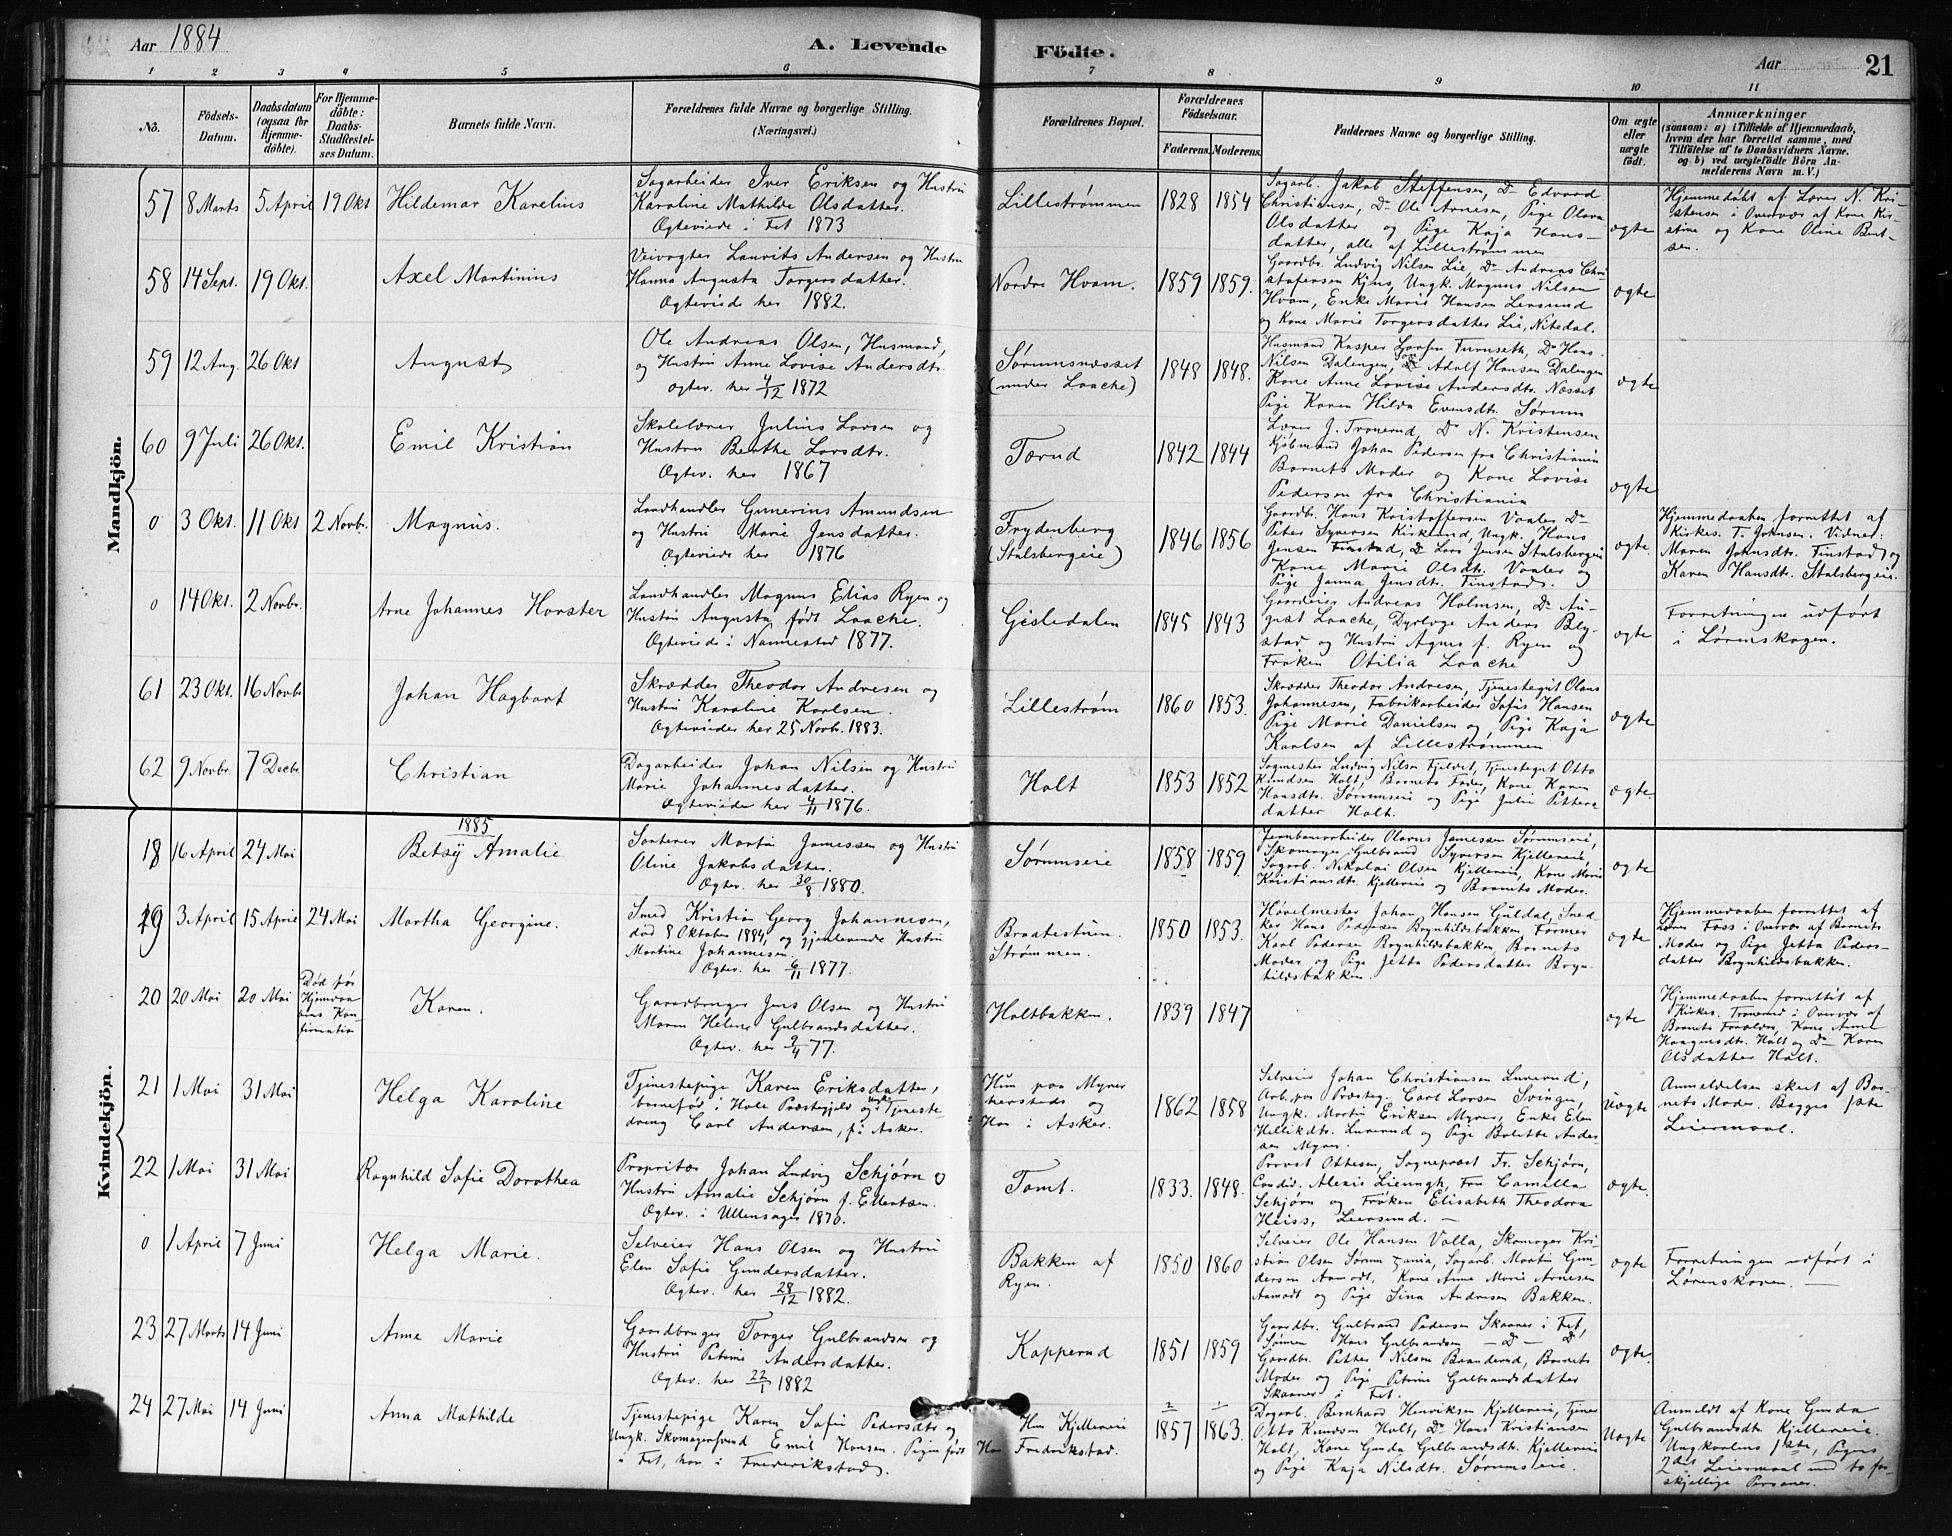 Aar 1884
A. Levende
Födte.
Aar
21
1 2 3 4 5 6 7 8 9 10 11
No.
Födsels-
Datum.
Daabsdatum
(ogsaa for
Hjemme-
döbte).
For Hjemme-
döbte:
Daabs-
Stadfæstel-
ses Datum.
Barnets fulde Navn.
Forældrenes fulde Navne og borgerlige Stilling.
(Næringsvei.)
Forældrenes Bopæl.
Forældrenes
Födselsaar.
Faderens. Moderens.
Faddernes Navne og borgerlige Stilling.
Om ægte
eller
uægte
födt.
Anmærkninger
(saasom: a) i Tilfælde af Hjemmedaab,
hvem der har forrettet samme, med
Tilföielse af to Daabsvidners Navne.
og b) ved uægtefödte Börn An-
melderens Navn m.V.)
Mandkjön.
57 8 Marts 5 April 19 Okt Hildemar Karelius
Sagarbeider Iver Eriksen og Hustru
Karoline Mathilde Olsdatter.
Ægteviede i Fet 1873
Lillestrømmen 1828 1854
Sagarb. Jakob Steffensen, Do Edvard
Christiansen, Do Ole Arnesen, Pige Olava
Olsdatter og Pige Kaja Hans-
datter, alle af Lillestrømmen
ægte
Hjemmedøbt af Lærer N. Kri-
stensen i Overvær af Kone Kri-
stine og Kone Oline Bent-
sen.
58 14 Sept. 19 Okt. Axel Martinius
Veivogter Laurits Andersen og Hustru
Hanna Augusta Torgersdatter.
Ægteviede her 1882.
Nordre Hvam. 1859 1859.
Gaardbr. Ludvig Nilsen Lie, Do Andreas Chri-
stofersen Kjus, Ungk. Magnus Nilsen
Hvam, Enke Marie Hansen Leirsund
og Kone Marie Torgersdatter Lie, Nitedal.
ægte
59 12 Aug. 26 Okt August
Ole Andreas Olsen, Husmand,
og Hustru Anne Lovise Andersdtr.
ægtev. her 4/12 1872
Sørumsnæsset
(under Laache)
1848 1848.
Husmand Kasper Larsen Furuseth, Do Hans
Nilsen Dalengen, Do Adolf Hansen Dalengen
Kone Anne Lovise Andersdtr. Næsset
Pige Karen Hilda Evensdtr. Sørum
ægte
60 9 Juli 26 Okt. Emil Kristian
Skolelærer Julius Larsen og
Hustru Berthe Larsdtr.
Ægtev. her 1867
Tærud 1842 1844
Lærer J. Tronerud, Do N. Kristensen
Kjøbmand Johan Pedersen fra Christiania
Barnets Moder og Kone Lovise
Pedersen fra Christiania
ægte
0 3 Okt. 11 Okt 2 Novbr. Magnus.
Landhandler Gunerius Amundsen
og Hustru Marie Jensdatter.
Ægteviede her 1876
Frydenberg
(Stalsbergeie)
1846 1856
Gaardbr. Hans Kristoffersen Vaaler, Do
Peter Syversen Kirklund, Ungk. Hans
Jensen Finstad, Do Lars Jensen Stalsbergeie
Kone Marie Olsdtr. Vaaler og
Pige Janna Jensdtr. Finstad.
ægte.
Hjemmedaaben forrettet af
Kirkes. T. Johnsen. Vidner:
Maren Johnsdtr. Finstad og
Karen Hansdtr. Stalsbergeie.
0 14 Okt. 2 Novbr. Arne Johannes Horster
Landhandler Magnus Elias Ryen og
Hustru Augusta født Laache.
Ægteviede i Nannestad 1877.
Gisledalen 1845 1843
Gaardeier Andreas Holmsen, Do Au-
gust Laache, Dyrlæge Anders Bly-
stad og Hustru Agnes f. Ryen og
Frøken Otilia Laache
ægte
Forretningen udført
i Lørenskogen.
61 23 Okt. 16 Novbr Johan Hagbart
Skrædder Theodor Andresen og
Hustru Karoline Karlsen.
Ægteviedes her 25 Novb. 1883.
Lillestrøm 1860 1853.
Skrædder Theodor Andresen, Tjenestegut Olaus
Johannesen, Fabrikarbeider Sofus Hansen
Pige Marie Danielsen og Pige Kaja
Karlsen af Lillestrømmen
ægte
62 9 Novbr 7 Decbr Christian
Dagarbeider Johan Nilsen og Hustru
Marie Johannesdatter.
Ægteviedes her 4/11 1876.
Holt 1853 1852
Sagmester Ludvig Nilsen Fjeldet, Tjenestegut Otto
Knudsen Holt, Barnets Fader, Kone Karen
Hansdtr. Sørumseie og Pige Julie Petters-
datter Holt.
ægte.
Kvindekjön.
1885
18 16 April 24 Mai Betsÿ Amalie
Sorterer Martin Jamessen og Hustru
Oline Jakobsdatter.
Ægtev. her 30/8 1880.
Sørumseie 1858 1859
Jernbanearbeider Olavus Jamessen Sørumseie,
Skomager Gulbrand Syversen Kjellereie,
Sagarb. Nikolai Olsen Kjellereie, Kone Marie
Kristiansdtr. Kjellereie og Barnets Moder.
ægte
19 3 April 15 April 24 Mai Martha Georgine.
Smed Kristian Georg Johannesen,
død 8 Oktober 1884, og gjenlevende Hustru
Martine Johannesen.
Ægtev. her 6/11 1877.
Braatestuen.
Strømmen.
1850 1853.
Høvelmester Johan Hansen Guldal, Sned-
ker Hans Pedersen Brynhildsbakken, Former
Karl Pedersen Brynhildsbakken, Barnets
Moder og Pige Jetta Pedersdatter Bryn-
hildsbakken.
ægte
Hjemmedaaben forrettet af
Lærer Foss i Overvær af Barnets
Moder og Pige Jetta Peders-
datter Brynhildsbakken.
20 20 Mai 20 Mai
Død før
Hjemdaa-
bens Kon-
firmation
Karen.
Gaardbruger Jens Olsen og Hustru
Maren Helene Gulbrandsdatter.
Ægtev. her 9/4 77.
Holtbakken. 1839 1847
ægte
Hjemmedaaben forrettet af
Kirkes. Tronerud i Overvær af
Barnets Forældre, Kone Anne
Haagensdtr. Holt og Do Karen
Olsdatter Holt.
21 1 Mai 31 Mai Helga Karoline
Tjenestepige Karen Eriksdatter,
barnefød i Hole Præstegjeld og Ungk. Tjeneste-
dreng Carl Andersen, fr. Asker.
Hun paa Myrer
hersteds og
Han i Asker.
1862 1858
Selveier Johan Christiansen Lurerud,
Arb. paa Præsteg. Carl Larsen Svingen,
Ungk. Martin Eriksen Myrer, Enke Elen
Hellikdtr. Lurerud og Pige Bolette Ander-
sen Myrer.
Uægte
Anmeldelsen skeet af Bar-
nets Moder. Begges 1ste
Leiermaal.
22 1 Mai 31 Mai Ragnhild Sofie Dorothea
Propritær Johan Ludvig Schjørn og
Hustru Amalie Schjørn f. Ellertsen.
Ægtev. i Ullensager 1870.
Tomt. 1833. 1848.
Provst Ottesen, Sognepræst Fr. Schjørn,
Candid. Alexis Lieungh, Fru Camilla
Schjørn og Frøken Elisabeth Theodora
Heiss, Leersund.
ægte.
0 1 April 7 Juni Helga Marie.
Selveier Hans Olsen og Hustru
Elen Sofie Gundersdatter.
Ægtev. her 28/12 1882.
Bakken af
Ryen.
1850 1860
Selveier Ole Hansen Valla, Skomager Kri-
stian Olsen Sørum eie, Sagarb. Martin Gun-
dersen Aamodt, Kone Anne Marie Arnesen
Aamodt og Pige Sina Andresen Bakken.
ægte
Forretningen udført i
Lørenskoven.
23 27 Marts 14 Juni Anne Marie
Gaardbruger Torger Gulbrandsen og
Hustru Petrine Andersdatter.
Ægtev. her 22/1 1882
Kapperud 1851 1859
Gaardbr. Gulbrand Pedersen Skaaner i Fet,
Sønnen Hans Gulbrandsen — D — D,
Gaardbr. Petter Nilsen Branderud, Barnets
Moder og Pige Petrine Gulbrandsdatter
Skaaner i Fet.
ægte.
24 27 Mai 14 Juni Anna Mathilde
Tjenestepige Karen Sofie Pedersdtr og
Ungk. Skomagersvend Emil Hansen. Pigen født
i Fet, han i Frederikstad.
Hun Kjellereie
Han Fredrikstad.
2/1857 1/1863.
Dagarb. Bernhard Henriksen Kjellereie, Tjener
Otto Knudsen Holt, Do Hans Kristiansen
Holt, Kone Gunda Gulbrandsdtr. Kjellereie
og Pige Kaja Nilsdtr. Sørumseie.
Uægte
Anmeldt af Kone Gunda
Gulbrandsdt Kjellereie.
Ungkarlens 1ste, Pigens
2det Leiermaal med to for-
skjellige Personer.